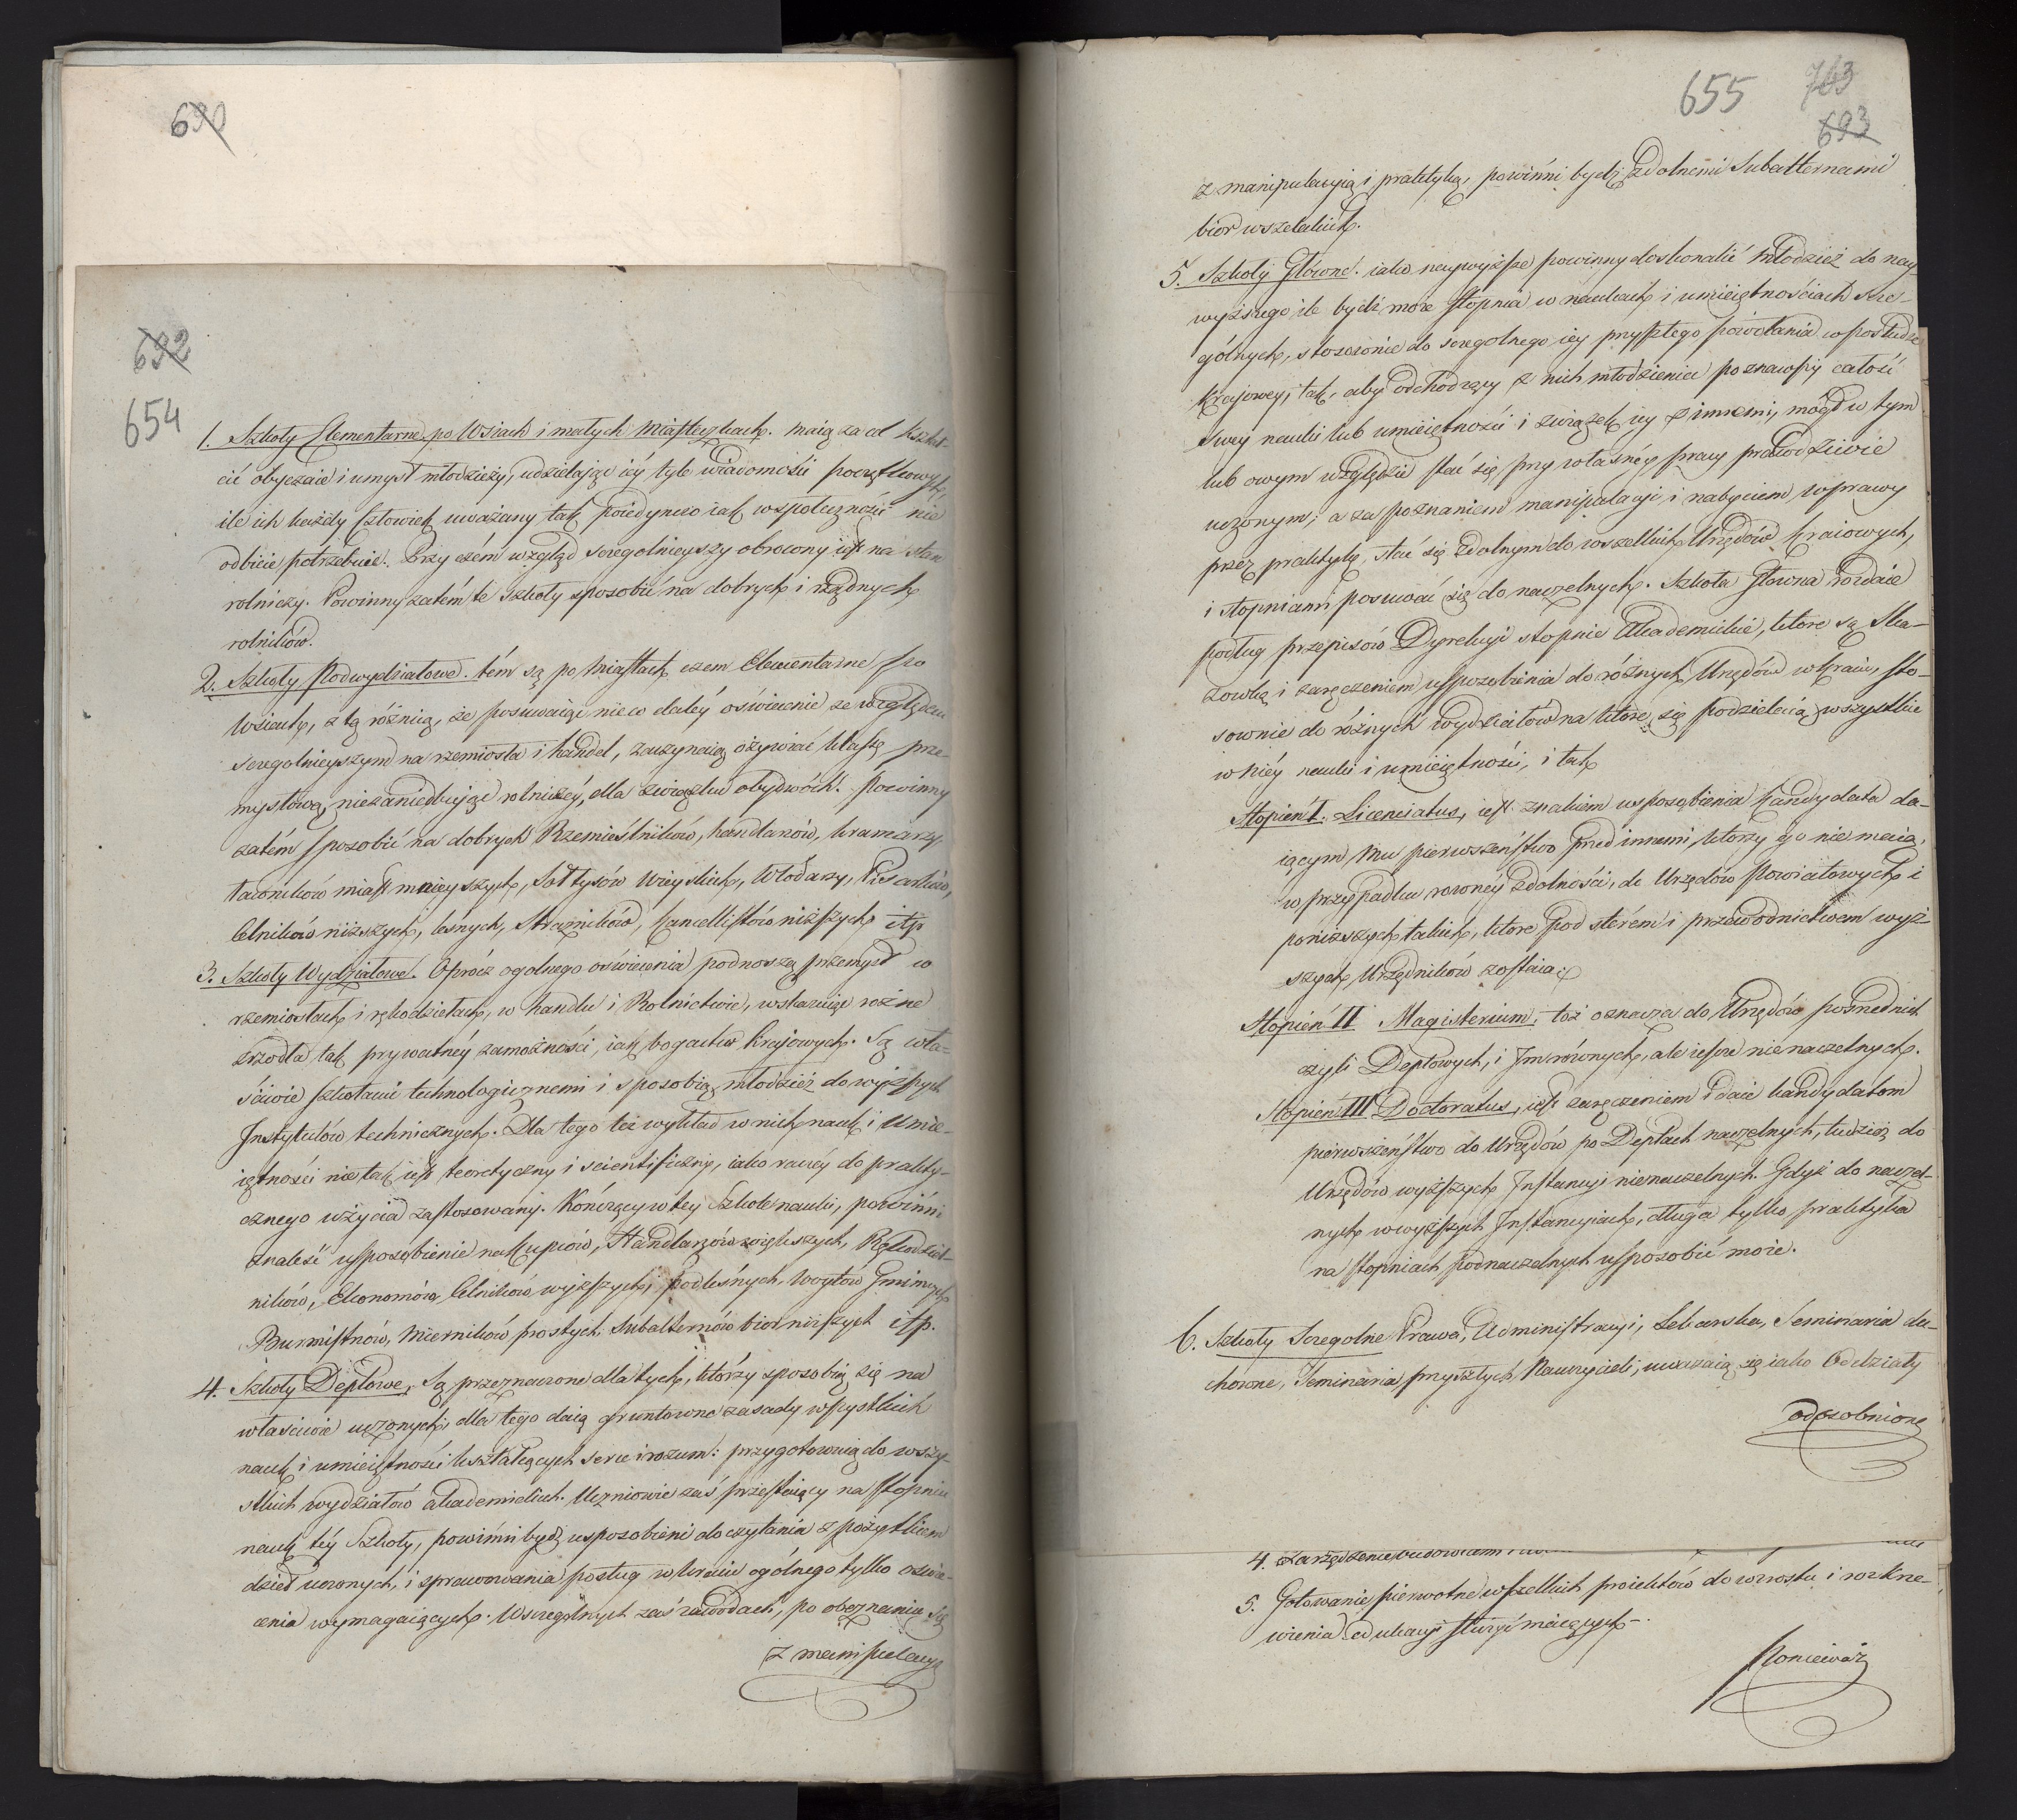 690
692
654
1. Szkoły Elementarne po Wsiach i małych Miasteczkach. maią za cel kształ-
cić obyczaie i umysł młodzieży, udzielając iéy tyle wiadomości początkowych,
ile ich każdy człowiek uważany tak poiedynczo iak w społeczności nie
odbicie potrzebuie. Przy czém wzgląd szczegolnieyszy obrocony iest na stan
rolniczy. Powinny zatém te szkoły sposobić na dobrych i rządnych
rolników.
2. Szkoły Podwydziałowe. tém są po Miastach czem Elementarne po
Wsiach, z tą różnicą, że posuwaiąc nieco daléy oświecenie ze względem
szczegolnieyszym na rzemiosła i handel, zaczynaią ożywiać klassę prze-
mysłową, niezaniedbuiąc rolniczéy, dla związku obydwóch. Powinny
zatém sposobić na dobrych Rzemieślników, handlarzów, kramarzy,
ławników miast mnieyszych, Sołtysów wieyskich, Włodarzy, Pisarków,
Celników niższych, leśnych, Strażników, Kancellistów niższych itp
3. Szkoły Wydziałowe. Oprócz ogolnego oświecenia podnoszą przemysł w
rzemiosłach i rękodziełach, w handlu i Rolnictwie, wskazuiąc rożne
zrzodła tak prywatnéy zamożności, iak bogactw kraiowych. Są wła-
ściwie szkołami technologicznemi i sposobią młodzież do wyższych
Instytutów technicznych. Dla tego też wykład w nich nauk i Umie-
iętności nie tak iest teoretyczny i scientificzny, iako raczéy do prakty-
cznego użycia zastosowany. Kończący w téy Szkole nauki, powinni
znaleść usposobienie na Kupców, Handlarzów większych, Rękodziel-
ników, Ekonomów, Celników wyższych, podleśnych, Woytów Gminnych
Burmistrzów, Mierników prostych, Subalternów biór niższych itp.
4. Szkoły Deptowe, Są przeznaczone dla tych, którzy sposobią się na
właściwie uczonych; dla tego daią gruntowne zasady wszystkich
nauk i umieiętności kształcących serce i rozum: przygotowuią do wszy-
stkich wydziałów akademickich. Uczniowie zaś przestaiący na stopniu
nauk téy Szkoły, powinni bydź usposobieni do czytania z pożytkiem
dzieł uczonych, i sprawowania posług w kraiu ogólnego tylko oświe-
cenia wymagaiących. W szczególnych zaś zawodach, po obeznaniu się
z manipulacyą
655 703
693
z manipulacyią i praktyką, powinni bydź zdolnemi Subalternami
biór wszelakich.
5. Szkoły Główne. iako naywyższe powinny doskonalić Młodzież do nay
wyższego ile bydź może stopnia w naukach i umieiętnościach szcze-
gólnych, stosownie do szczegolnego iéy przyszłego powołania w posłudze
Krajowey, tak, aby odchodzący z nich młodzieniec poznawszy całość
swéy nauki lub umieiętności i związek iéy z innemi, mógł w tym
lub owym względzie stać się przy własnéy pracy prawdziwie
uczonym; a za poznaniem manipulacyi i nabyciem wprawy
przez praktykę, stać się zdolnym do wszelkich Urzędów kraiowych,
i stopniami posuwać się do naczelnych. Szkoła Głowna rozdaie
podług przepisów Dyrekcyi stopnie Akademickie, które są Ska-
zowką i zaręczeniem usposobienia do różnych Urzędów w Kraiu, sto-
sownie do różnych wydziałów na które się podzielaią wszystkie
w niéy nauki i umieiętności, i tak
Stopień I. Licenciatus, iest znakiem usposobienia kandydata da-
iącym Mu pierwszeństwo przed innemi, którzy go nie maią,
w przypadku rowney zdolności, do Urzędów Powiatowych i
poniższych takich, które pod sterém i przewodnictwem wyż
szych Urzędników zostaią.
Stopień II Magisterium, toż oznacza do Urzędów pośrednich
czyli Deptowych, i Im równych, ale ieszcze nie naczelnych.
Stopień III Doctoratus, iest zaręczeniem i daie kandydatom
pierwszeństwo do Urzędów po Deptach naczelnych, tudzież do
Urzędów wyższych Instancyi nienaczelnych. Gdyż do naczel-
nych w wyższych Instancyiach, długa tylko praktyka
na stopniach podnaczelnych usposobić może.
6. Szkoły Szczegolne Prawa, Administracyi, Lekarska, Seminaria du-
chowne, Seminaria przyszłych Nauczycieli, uważaią się iako Oddziały
odosobnione
4. Zarządzenie budowlami
5. Gotowanie pierwotne wszelkich proiektów do wzrostu i rozkrze-
wienia edukacyi służyć maiących.
Ponieważ